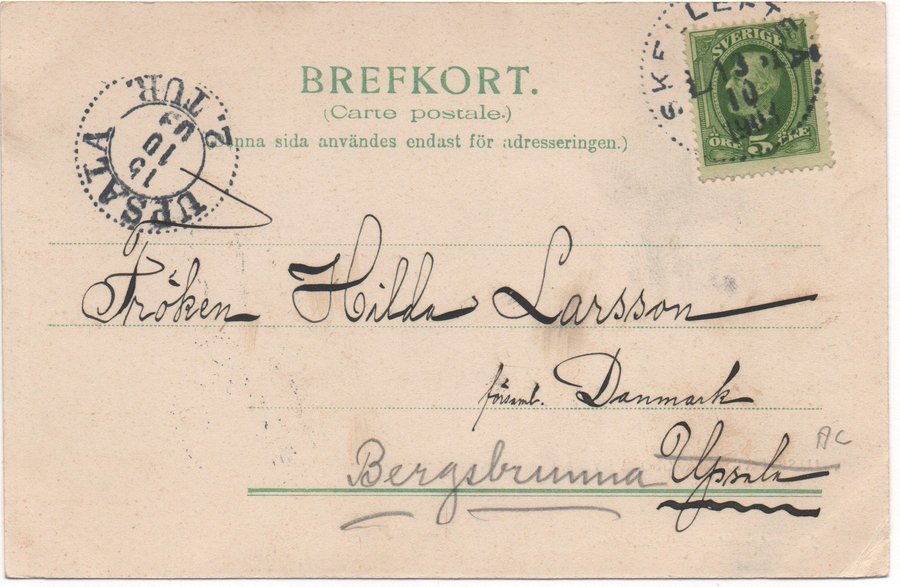 SKELLEFTEÅ
SVERIGE
13
10
1903
5
ÖRE ÖRE
BREFKORT.
(Carte postale.)
(Denna sida användes endast för adresseringen.)
UPSALA
2. TUR.
15
10
03
Fröken Hilda Larsson
församl. Danmark
Bergsbrunna Upsala
AC